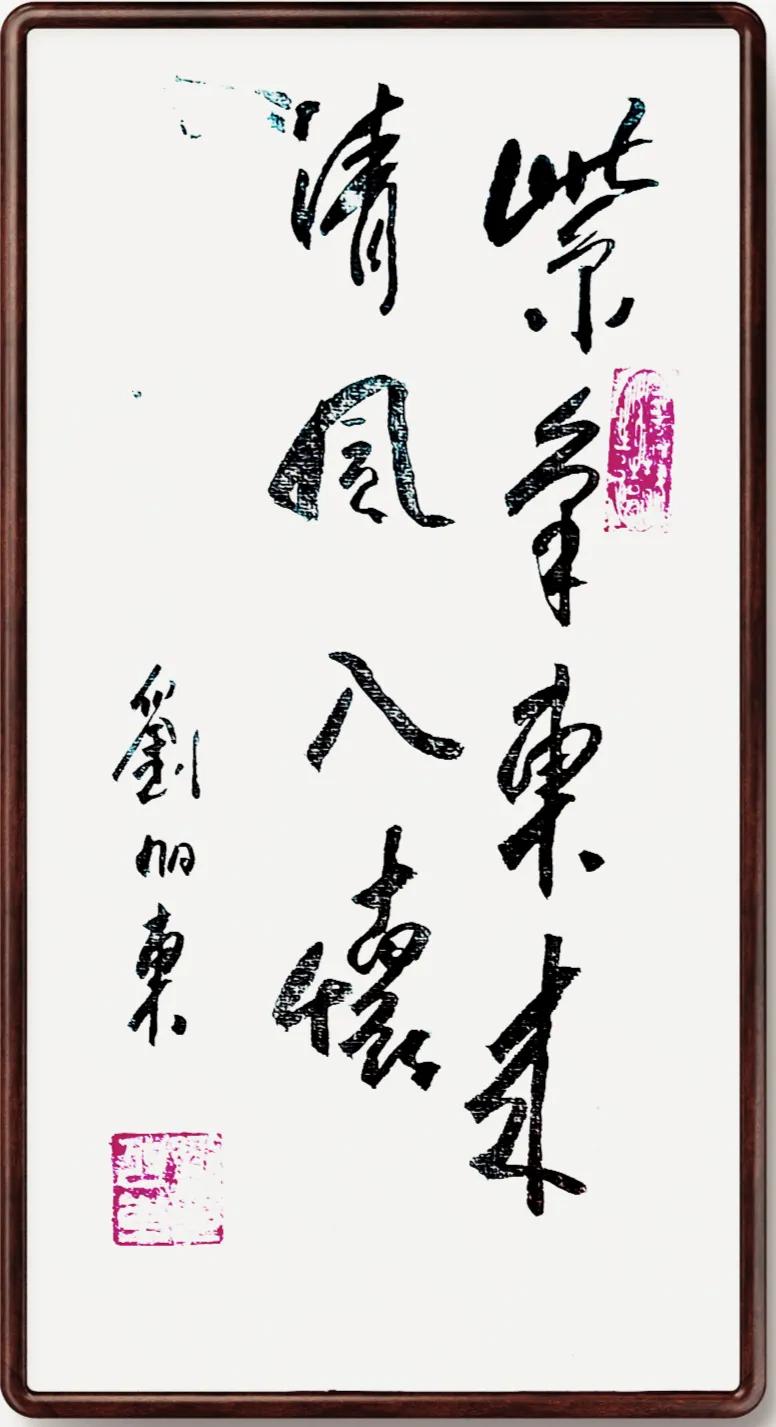 紫氣東來
清風入懷
劉旭東